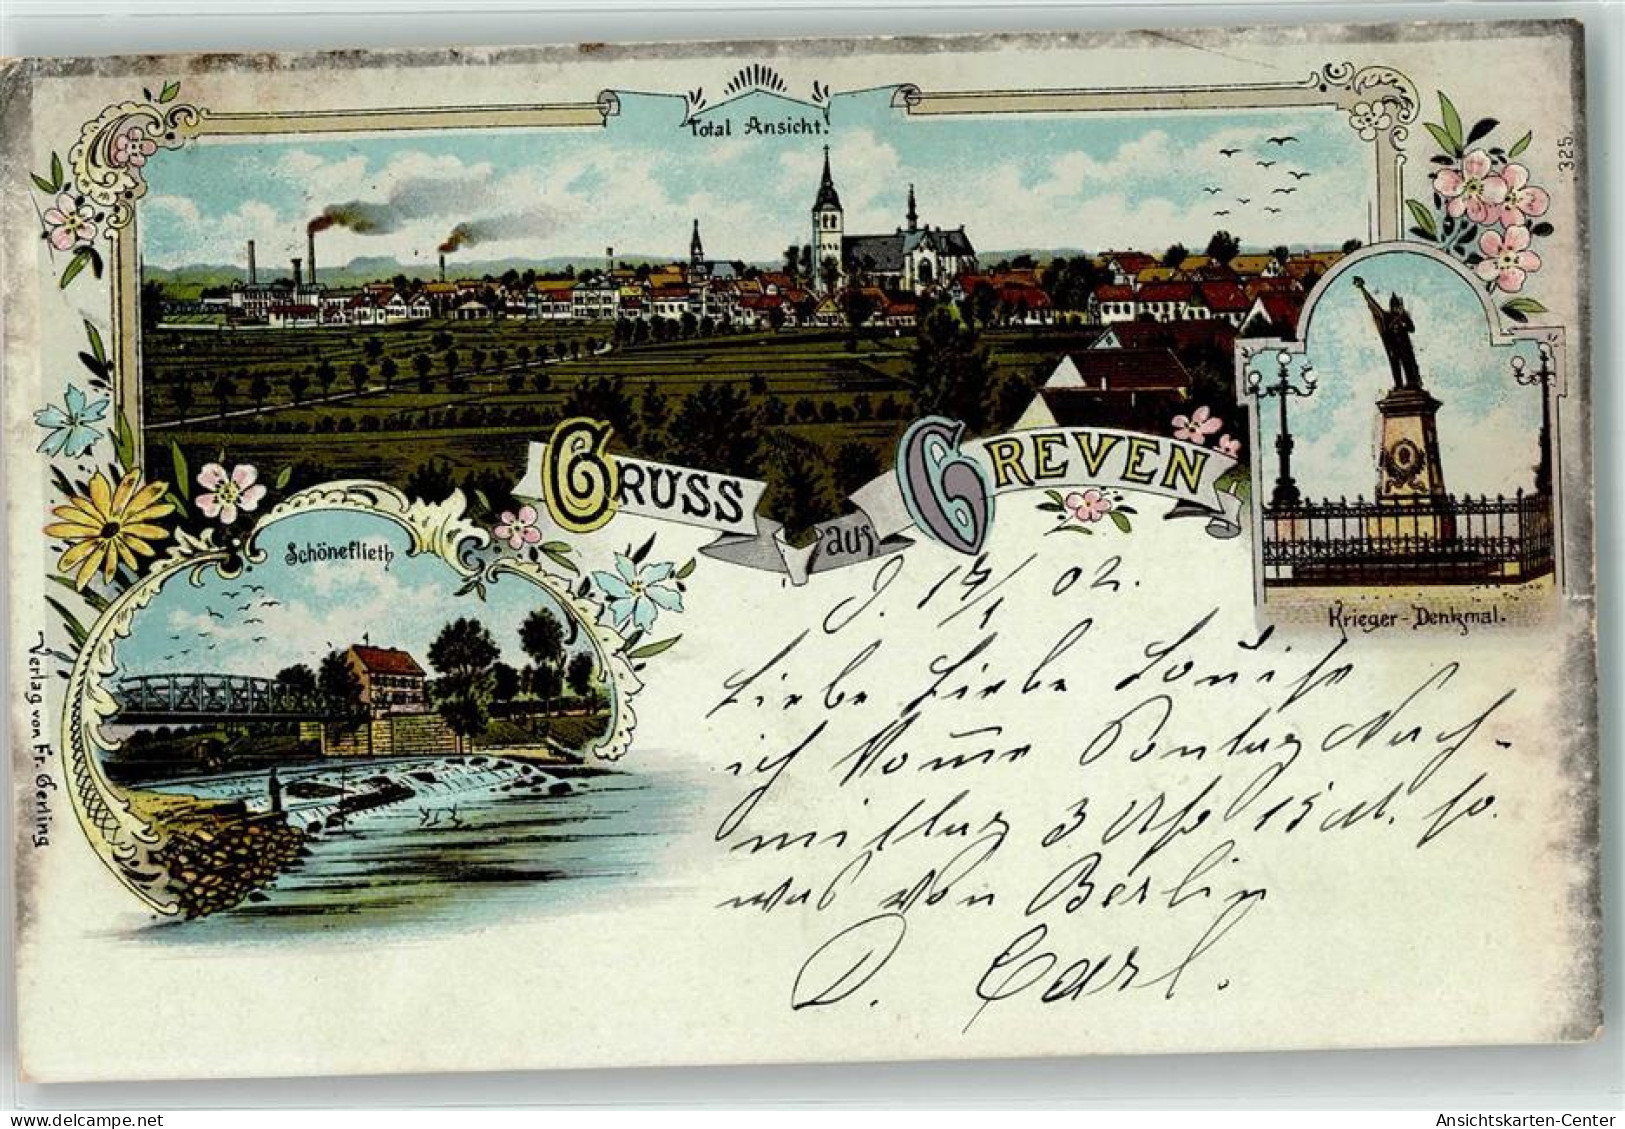 Total Ansicht.
325
GRUSS aus GREVEN
Schöneflieth
Krieger-Denkmal.
Verlag von Fr. Gerling
02.
Liebe Liebe Louise
ich komme Nach-
mittag 3 Uhr 15 M.
was von Berlin
D. Carl.
delcampe.net
Ansichtskarten-Center